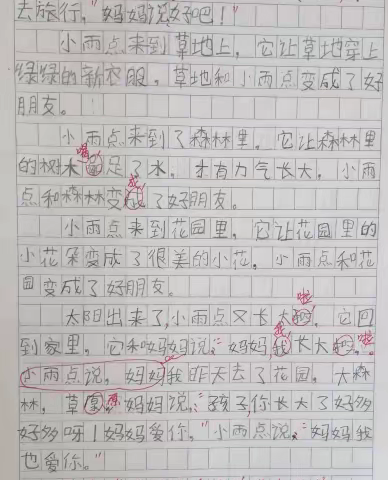 去旅行，”妈妈说好吧！”
小雨点来到草地上，它让草地穿上
绿绿的新衣服，草地和小雨点变成了好
朋友。
小雨点来到了森林里，它让森林里
喝
的树木足了水，才有力气长大，小雨
成
点和森林变了好朋友。
小雨点来到花园里，它让花园里的
小花朵变成了很美的小花，小雨点和花
园变成了好朋友。
啦
太阳出来了，小雨点又长大，它回
我
到家里，它和妈妈说：“妈妈，我长大啦，
小雨点说，妈妈我昨天去了花园，大森
林，草原，妈妈说：“孩子，你长大了好多
好多呀！妈妈爱你，”小雨点说：“妈妈我
也爱你。”